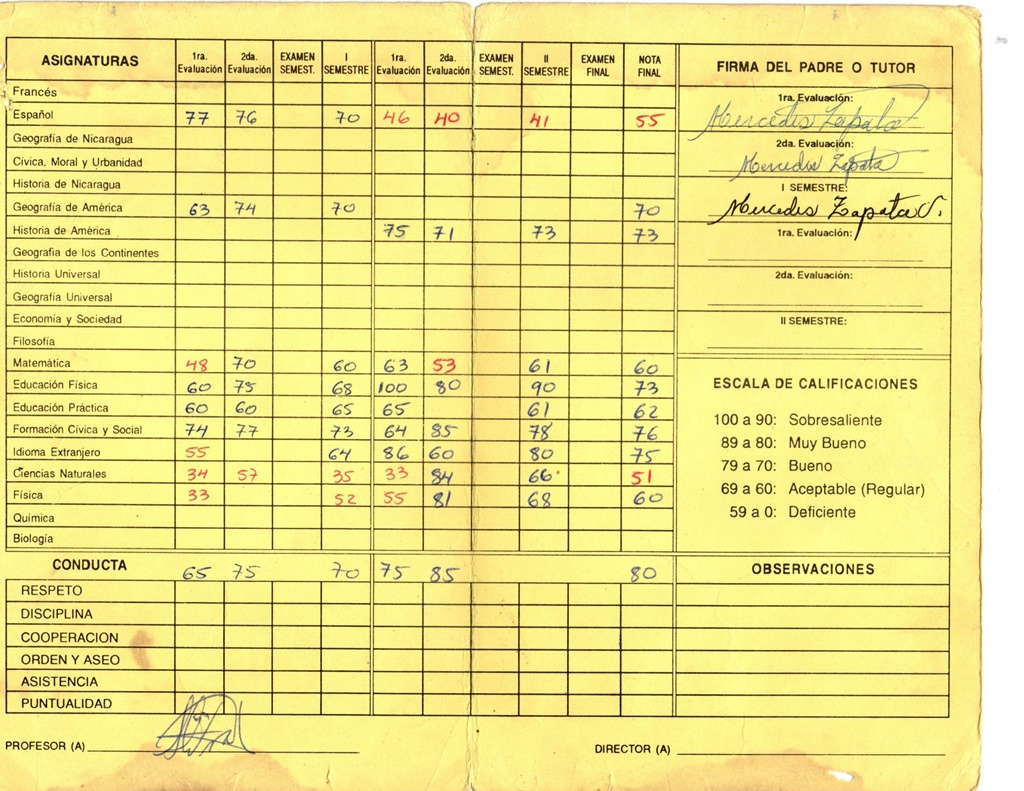 ASIGNATURAS 1ra. Evaluación 2da. Evaluación EXAMEN SEMEST. I SEMESTRE 1ra. Evaluación 2da. Evaluación EXAMEN SEMEST. II SEMESTRE EXAMEN FINAL NOTA FINAL
Francés
Español 77 76 70 46 40 41 55
Geografía de Nicaragua
Cívica, Moral y Urbanidad
Historia de Nicaragua
Geografía de América 63 74 70 70
Historia de América 75 71 73 73
Geografia de los Continentes
Historia Universal
Geografía Universal
Economía y Sociedad
Filosofía
Matemática 48 70 60 63 53 61 60
Educación Física 60 75 68 100 80 90 73
Educación Práctica 60 60 65 65 61 62
Formación Cívica y Social 74 77 73 64 85 78 76
Idioma Extranjero 55 64 86 60 80 75
Ciencias Naturales 34 57 35 33 84 66 51
Física 33 52 55 81 68 60
Química
Biología
CONDUCTA 65 75 70 75 85 80
RESPETO
DISCIPLINA
COOPERACION
ORDEN Y ASEO
ASISTENCIA
PUNTUALIDAD
PROFESOR (A)
FIRMA DEL PADRE O TUTOR
1ra. Evaluación:
Mercedes Zapata
2da. Evaluación:
Mercedes Zapata
I SEMESTRE:
Mercedes Zapata V.
1ra. Evaluación:
2da. Evaluación:
II SEMESTRE:
ESCALA DE CALIFICACIONES
100 a 90: Sobresaliente
89 a 80: Muy Bueno
79 a 70: Bueno
69 a 60: Aceptable (Regular)
59 a 0: Deficiente
OBSERVACIONES
DIRECTOR (A)